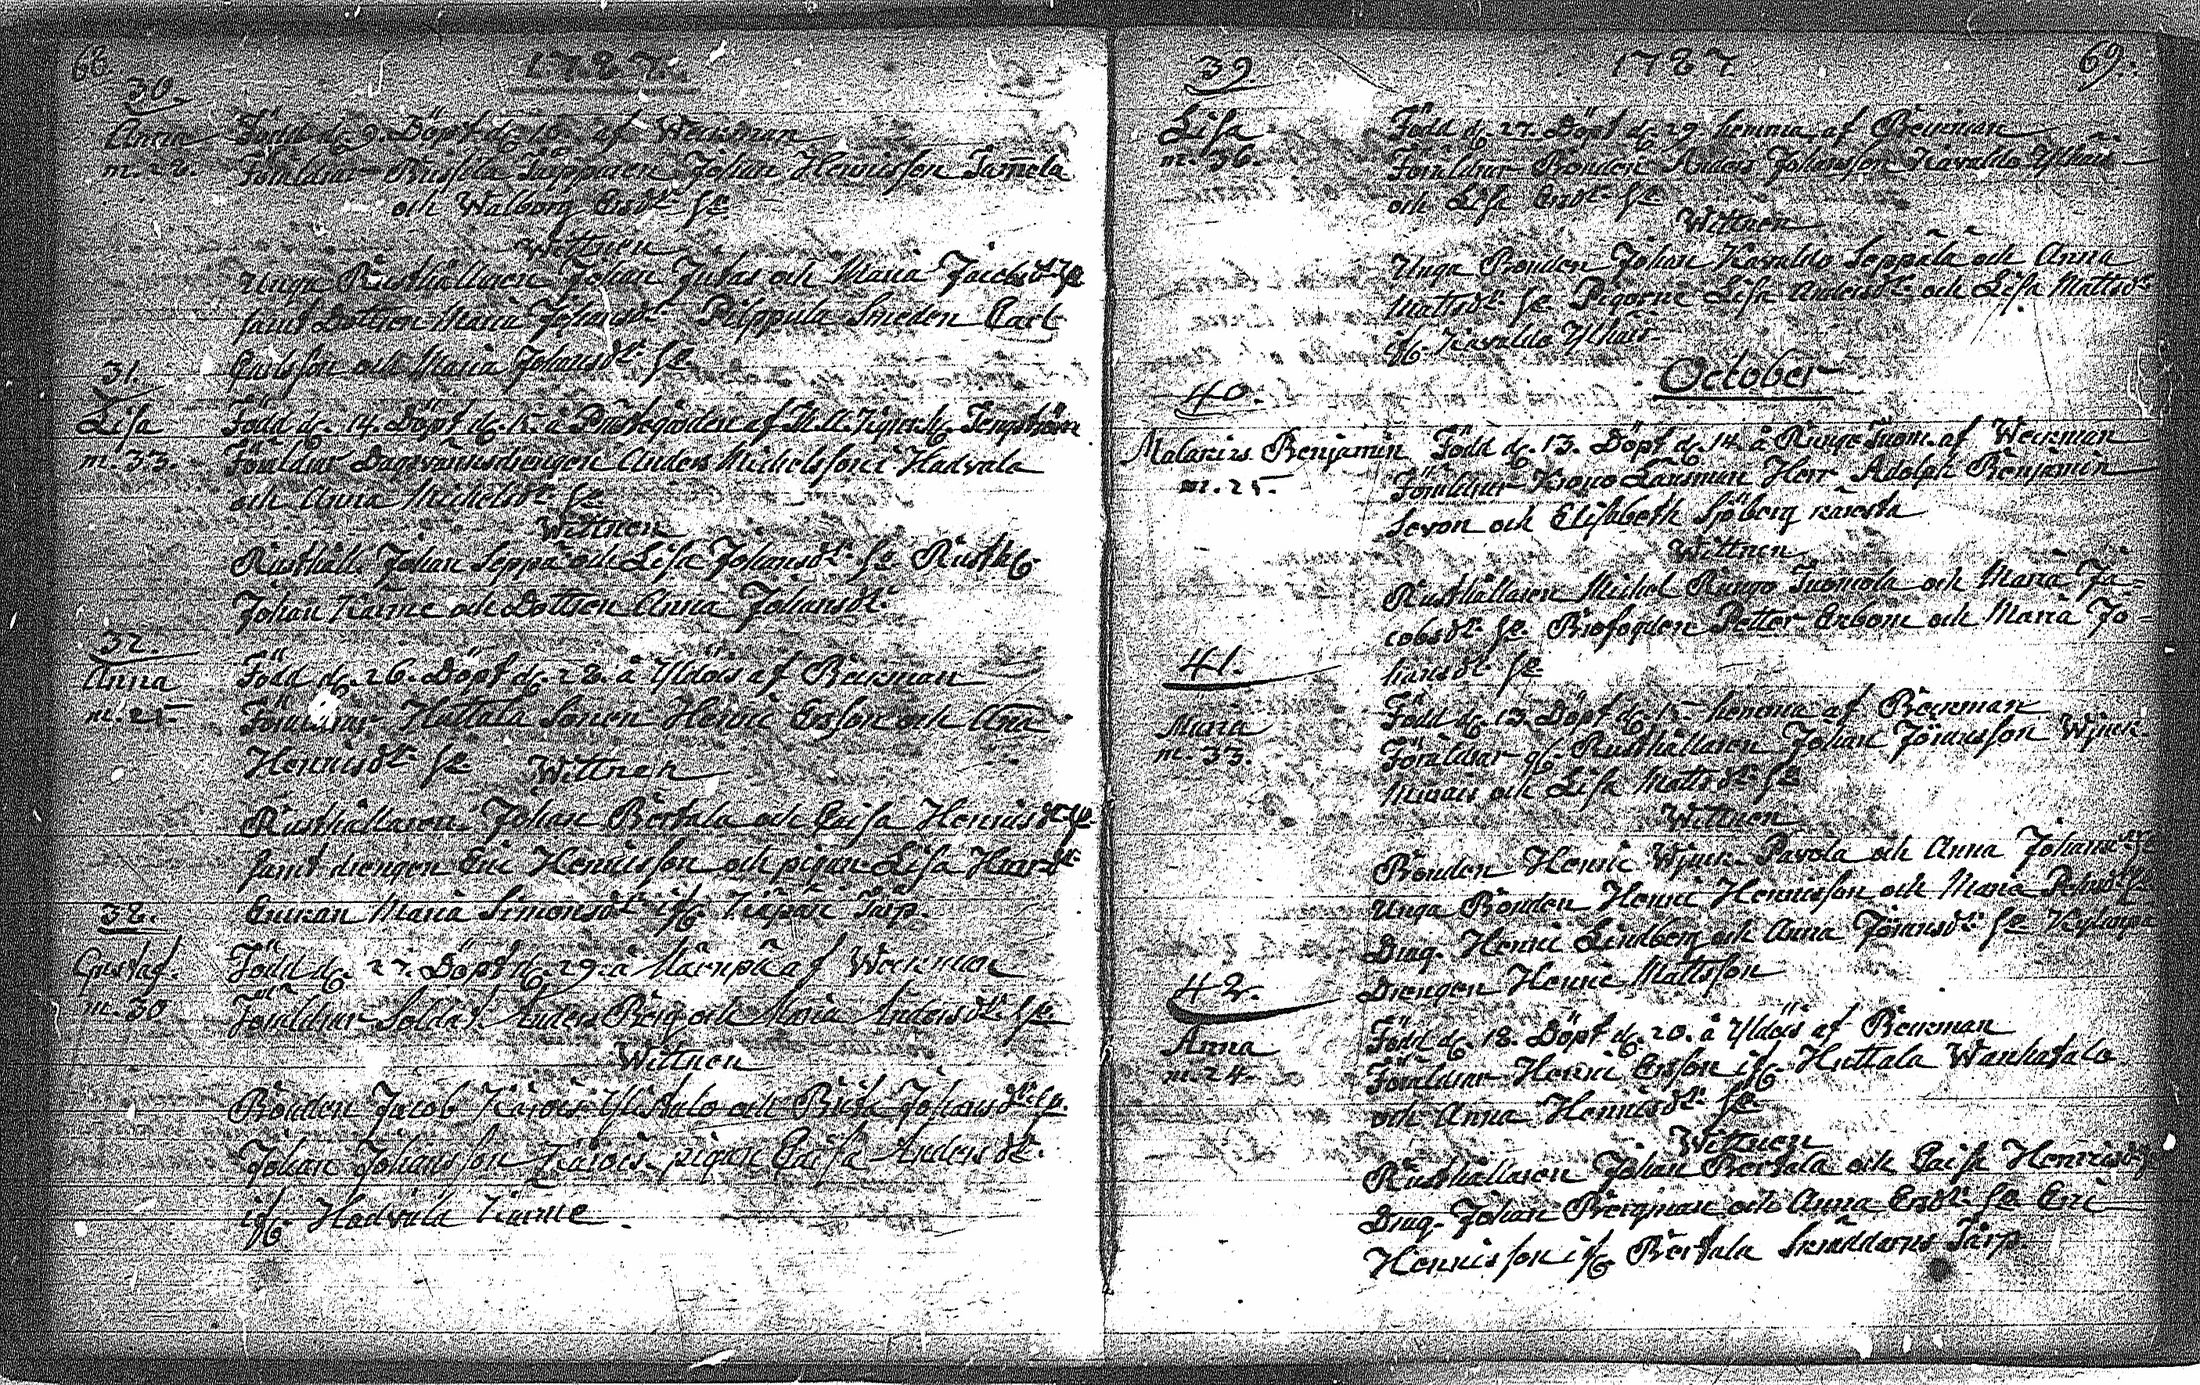 68.
1787.
30.
Anna
m. 28.
Född d. 9. Döpt d. 10. af Weckman
Föräldrar Johan Henricsson Tammela
och Walborg Ersdr. H.
Wittnen
Unga Rusthållaren Johan Jutas och Maria Jacobsdr. H.
samt Dottren Maria Johansdr. Pilppula Smeden Carl
Carlsson och Maria Johansdr. H.
31.
Lisa
m. 33.
Född d. 14. Döpt d. 15. å Prästegården af
Föräldrar Anders Michelsson i Hadvala
och Anna Michelsdr. H.
Wittnen
Rusthåll. Johan Seppä och Lisa Johansdr. H. Rusth.
Johan Kaime och Dottren Anna Johansdr.
32.
Anna
m. 25
Född d. 26. Döpt d. 28. å Yldöis af Beckman
Föräldrar Huttala Sonen Henric Ersson och Anna
Henricsdr. H.
Wittnen
Rusthållaren Johan Bertala och Caisa Henricsdr. H.
samt drengen Eric Henricsson och pigan Lisa
Enkan Maria Simonsdr. Torp.
38.
Gustaf.
m. 30
Född d. 27. Döpt d. 29. å af Weckman
Föräldrar Soldat. Anders Berg och Maria Andersdr. H.
Wittnen
Bonden Jacob Karois Ylistalo och Brita Johansdr. H.
Johan Johansson Karois pigan Caisa Andersdr.
ifr. Hadvala Kaime.
1787
69.
39.
Lisa
m. 36.
Född d. 27. Döpt d. 29 hemma af Beckman
Föräldrar Bonden Anders Johansson Kavaldo Ylhais
och Lisa Ersdr. H.
Wittnen
Unga Bonden Johan Kavaldo Seppälä och Anna
Mattsdr. H. Pigorne Lisa Andersdr. och Lisa Mattsdr.
ifr. Kavaldo Ylhais
October
40.
Malakias Benjamin
m. 25.
Född d. 13. Döpt d. 14. å Ringo Tuom. af Weckman
Föräldrar Krono Länsman Herr Adolph Benjamin
Sevon och Elisabeth Sjöberg
Wittnen
Rusthållaren Michel Ringo Tuomola och Maria Ja=
cobsdr. H. Brofogden Petter Enbom och Maria Jo=
hansdr. H.
41.
Maria
m. 33.
Född d. 13. Döpt d. 15. hemma af Beckman
Föräldrar Rusthållaren Johan Johansson
och Lisa Mattsdr. H.
Wittnen
Bonden Henric Pavola och Anna Johansdr. H.
Unga Bonden Henric Henricsson och Maria
Drag. Henric Lindberg och Anna Jöransdr. H.
Drengen Henric Mattsson
42.
Anna
m. 24.
Född d. 18. Döpt d. 20. å Yldöis af Beckman
Föräldrar Henric Ersson ifr. Huttala Wanhatalo
och Anna Henricsdr. H.
Wittnen
Rusthållaren Johan Bertala och Caisa Henricsdr. H.
Drag. Johan Bergman och Anna Ersdr. H. Eric
Henricsson ifr. Bertala Skräddares Torp.